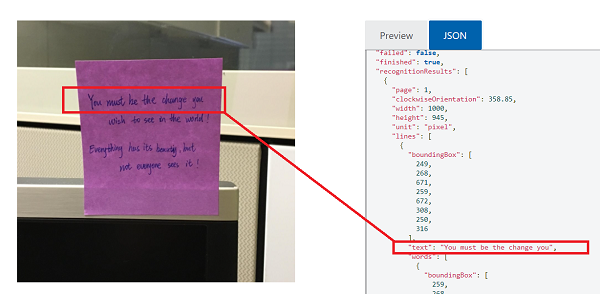 You must be the change you
wish to see in the world!
Everything has its beauty, but
not everyone sees it!
Preview
JSON
"failed": false,
"finished": true,
"recognitionResults": [
{
"page": 1,
"clockwiseOrientation": 358.85,
"width": 1000,
"height": 945,
"unit": "pixel",
"lines": [
{
"boundingBox": [
249,
268,
671,
259,
672,
308,
250,
316
],
"text": "You must be the change you",
"words": [
{
"boundingBox": [
259,
268,